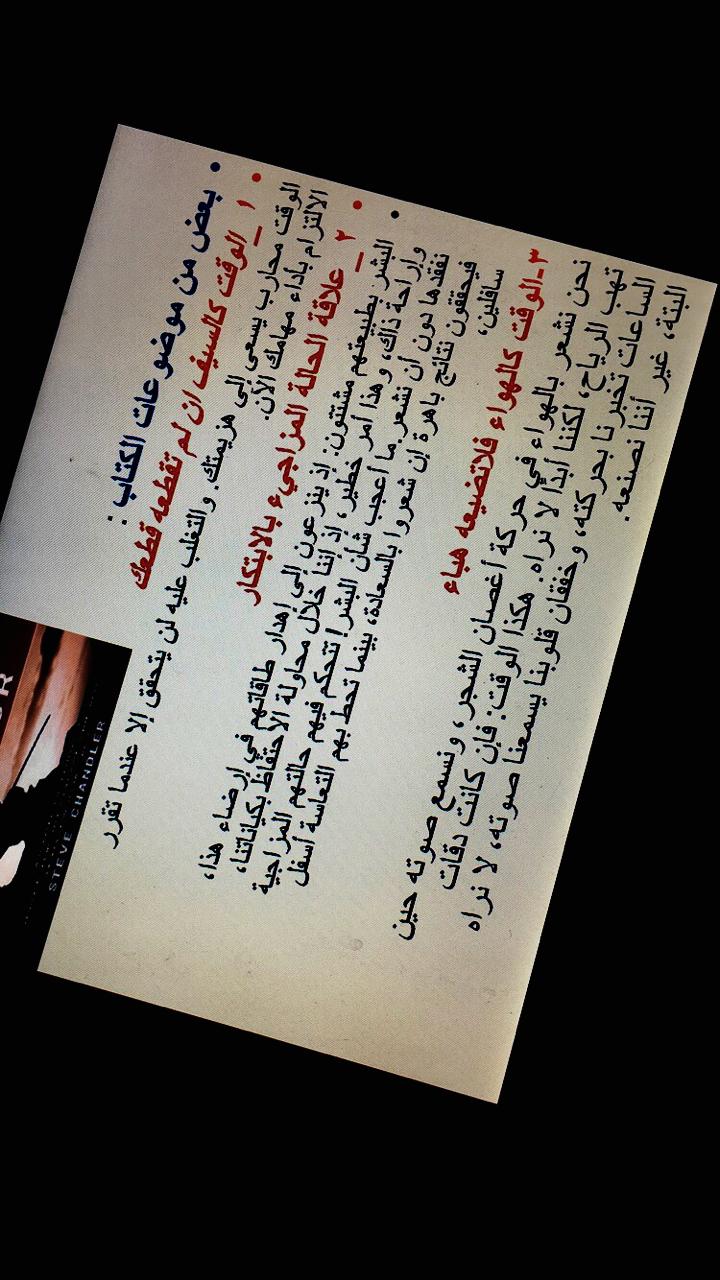 بعض من موضوعات الكتاب :
١ _ الوقت كالسيف ان لم تقطعه قطعك
الوقت محارب يسعى إلى هزيمتك. والتغلب عليه لن يتحقق إلا عندما تقرر
الالتزام بأداء مهامك الآن.
٢ _ علاقة الحالة المزاجيء بالابتكار
البشر بطبيعتهم مشتتون. إذ ينزعون إلى إهدار طاقاتهم في إرضاء هذا،
وإراحة ذاك، وهذا أمر خطير، إذ إننا خلال محاولة الاحتفاظ بكياناتنا،
نفقدها دون أن نشعر. ما أعجب شأن البشر! تتحكم فيهم حالتهم المزاجية
فيحققون نتائج باهرة إن شعروا بالسعادة، بينما تحط بهم التعاسة أسفل
سافلين،
٣-الوقت كالهواء فلاتضيعه هباء
نحن نشعر بالهواء في حركة أغصان الشجر، ونسمع صوته حين
تهب الرياح، لكننا أبدًا لا نراه. هكذا الوقت: فإن كانت دقات
الساعات تخبرنا بحركته، وخفقان قلوبنا يسمعنا صوته، لا نراه
البتة، غير أننا نصنعه.
STEVE CHANDLER